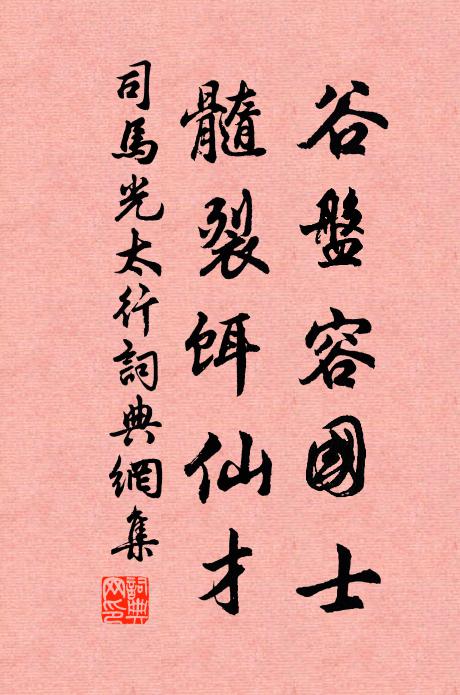 谷盤容國士
髓裂餌仙才
司馬光太行詞典網集
詞典網印